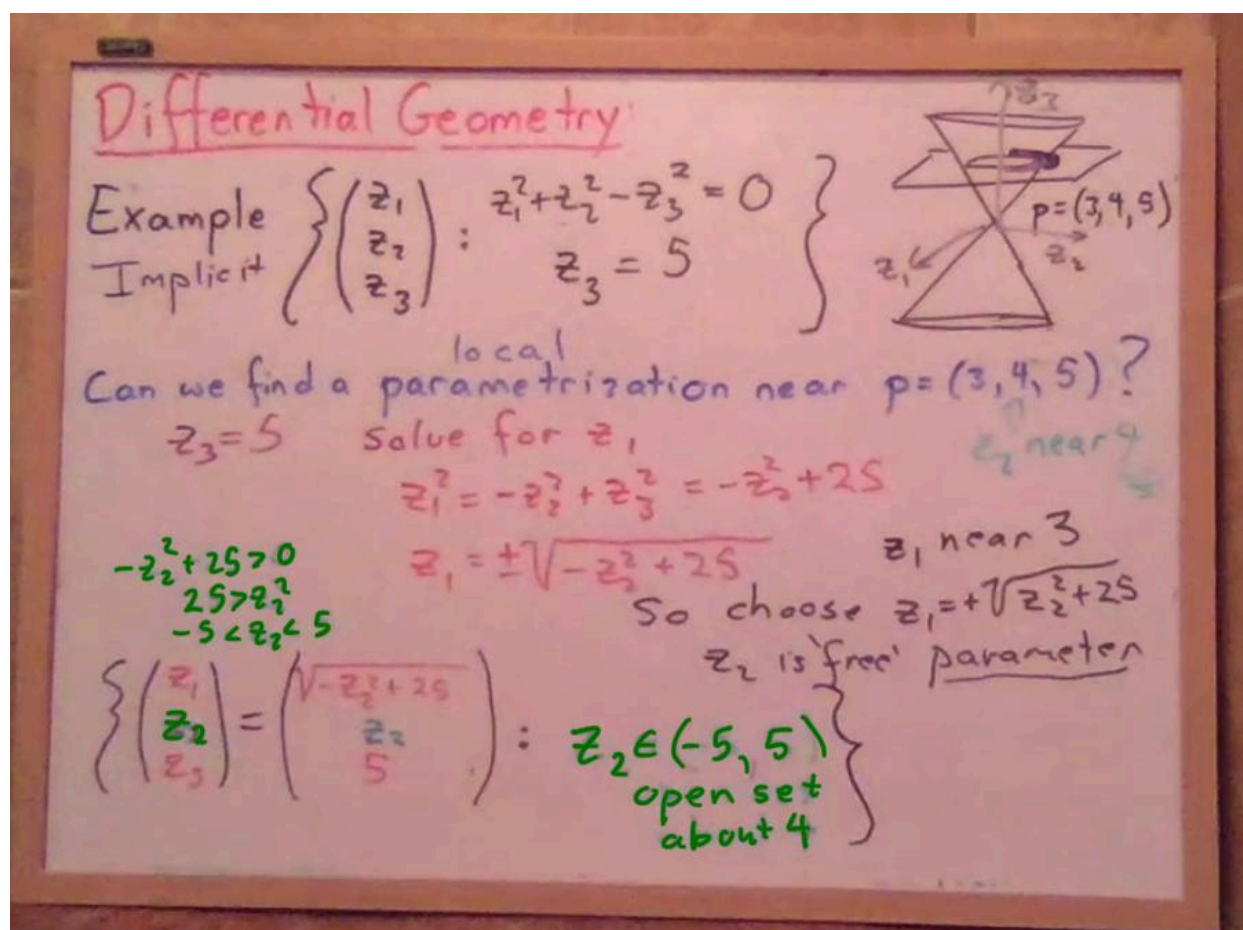 Differential Geometry
Example Implicit { ( z₁ z₂ z₃ ) : z₁² + z₂² - z₃² = 0 z₃ = 5 }
z₁
z₂
p=(3,4,5)
local
Can we find a parametrization near p= (3, 4, 5)?
z₃=5 solve for z₁
z₂ near 4
z₁² = -z₂² + z₃² = -z₂² + 25
z₁ = ±√(-z₂² + 25)
z₁ near 3
So choose z₁=+√(z₂²+25)
z₂ is 'free' parameter
-z₂²+25>0
25>z₂²
-5<z₂<5
{ ( z₁ z₂ z₃ ) = ( √(-z₂²+25) z₂ 5 ) : z₂∈(-5, 5) }
open set
about 4